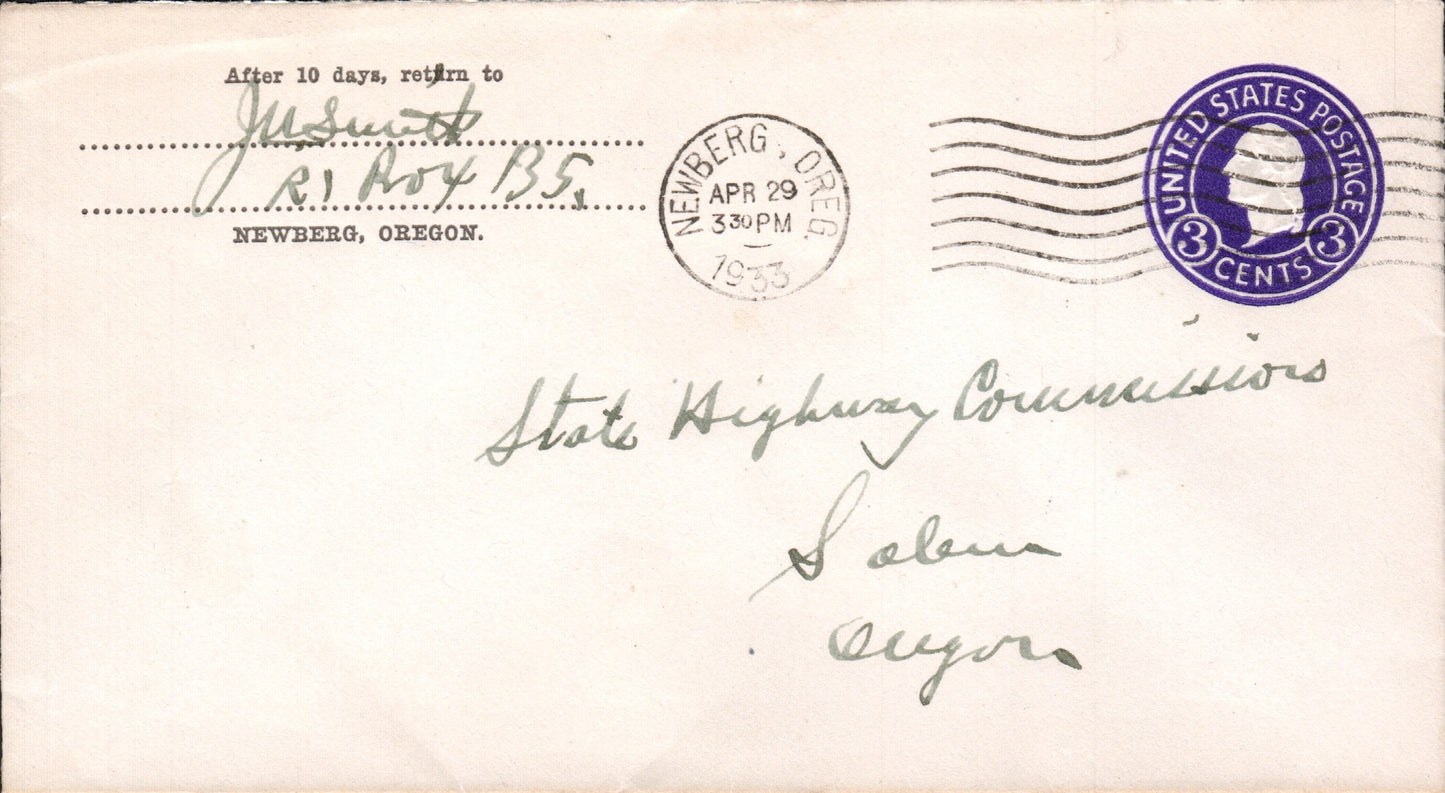 After 10 days, return to
J M Smith
R1 Box 135,
NEWBERG, OREGON.
NEWBERG, OREG.
APR 29
3 30 PM
1933
UNITED STATES POSTAGE
3 CENTS 3
State Highway Commission
Salem
Oregon